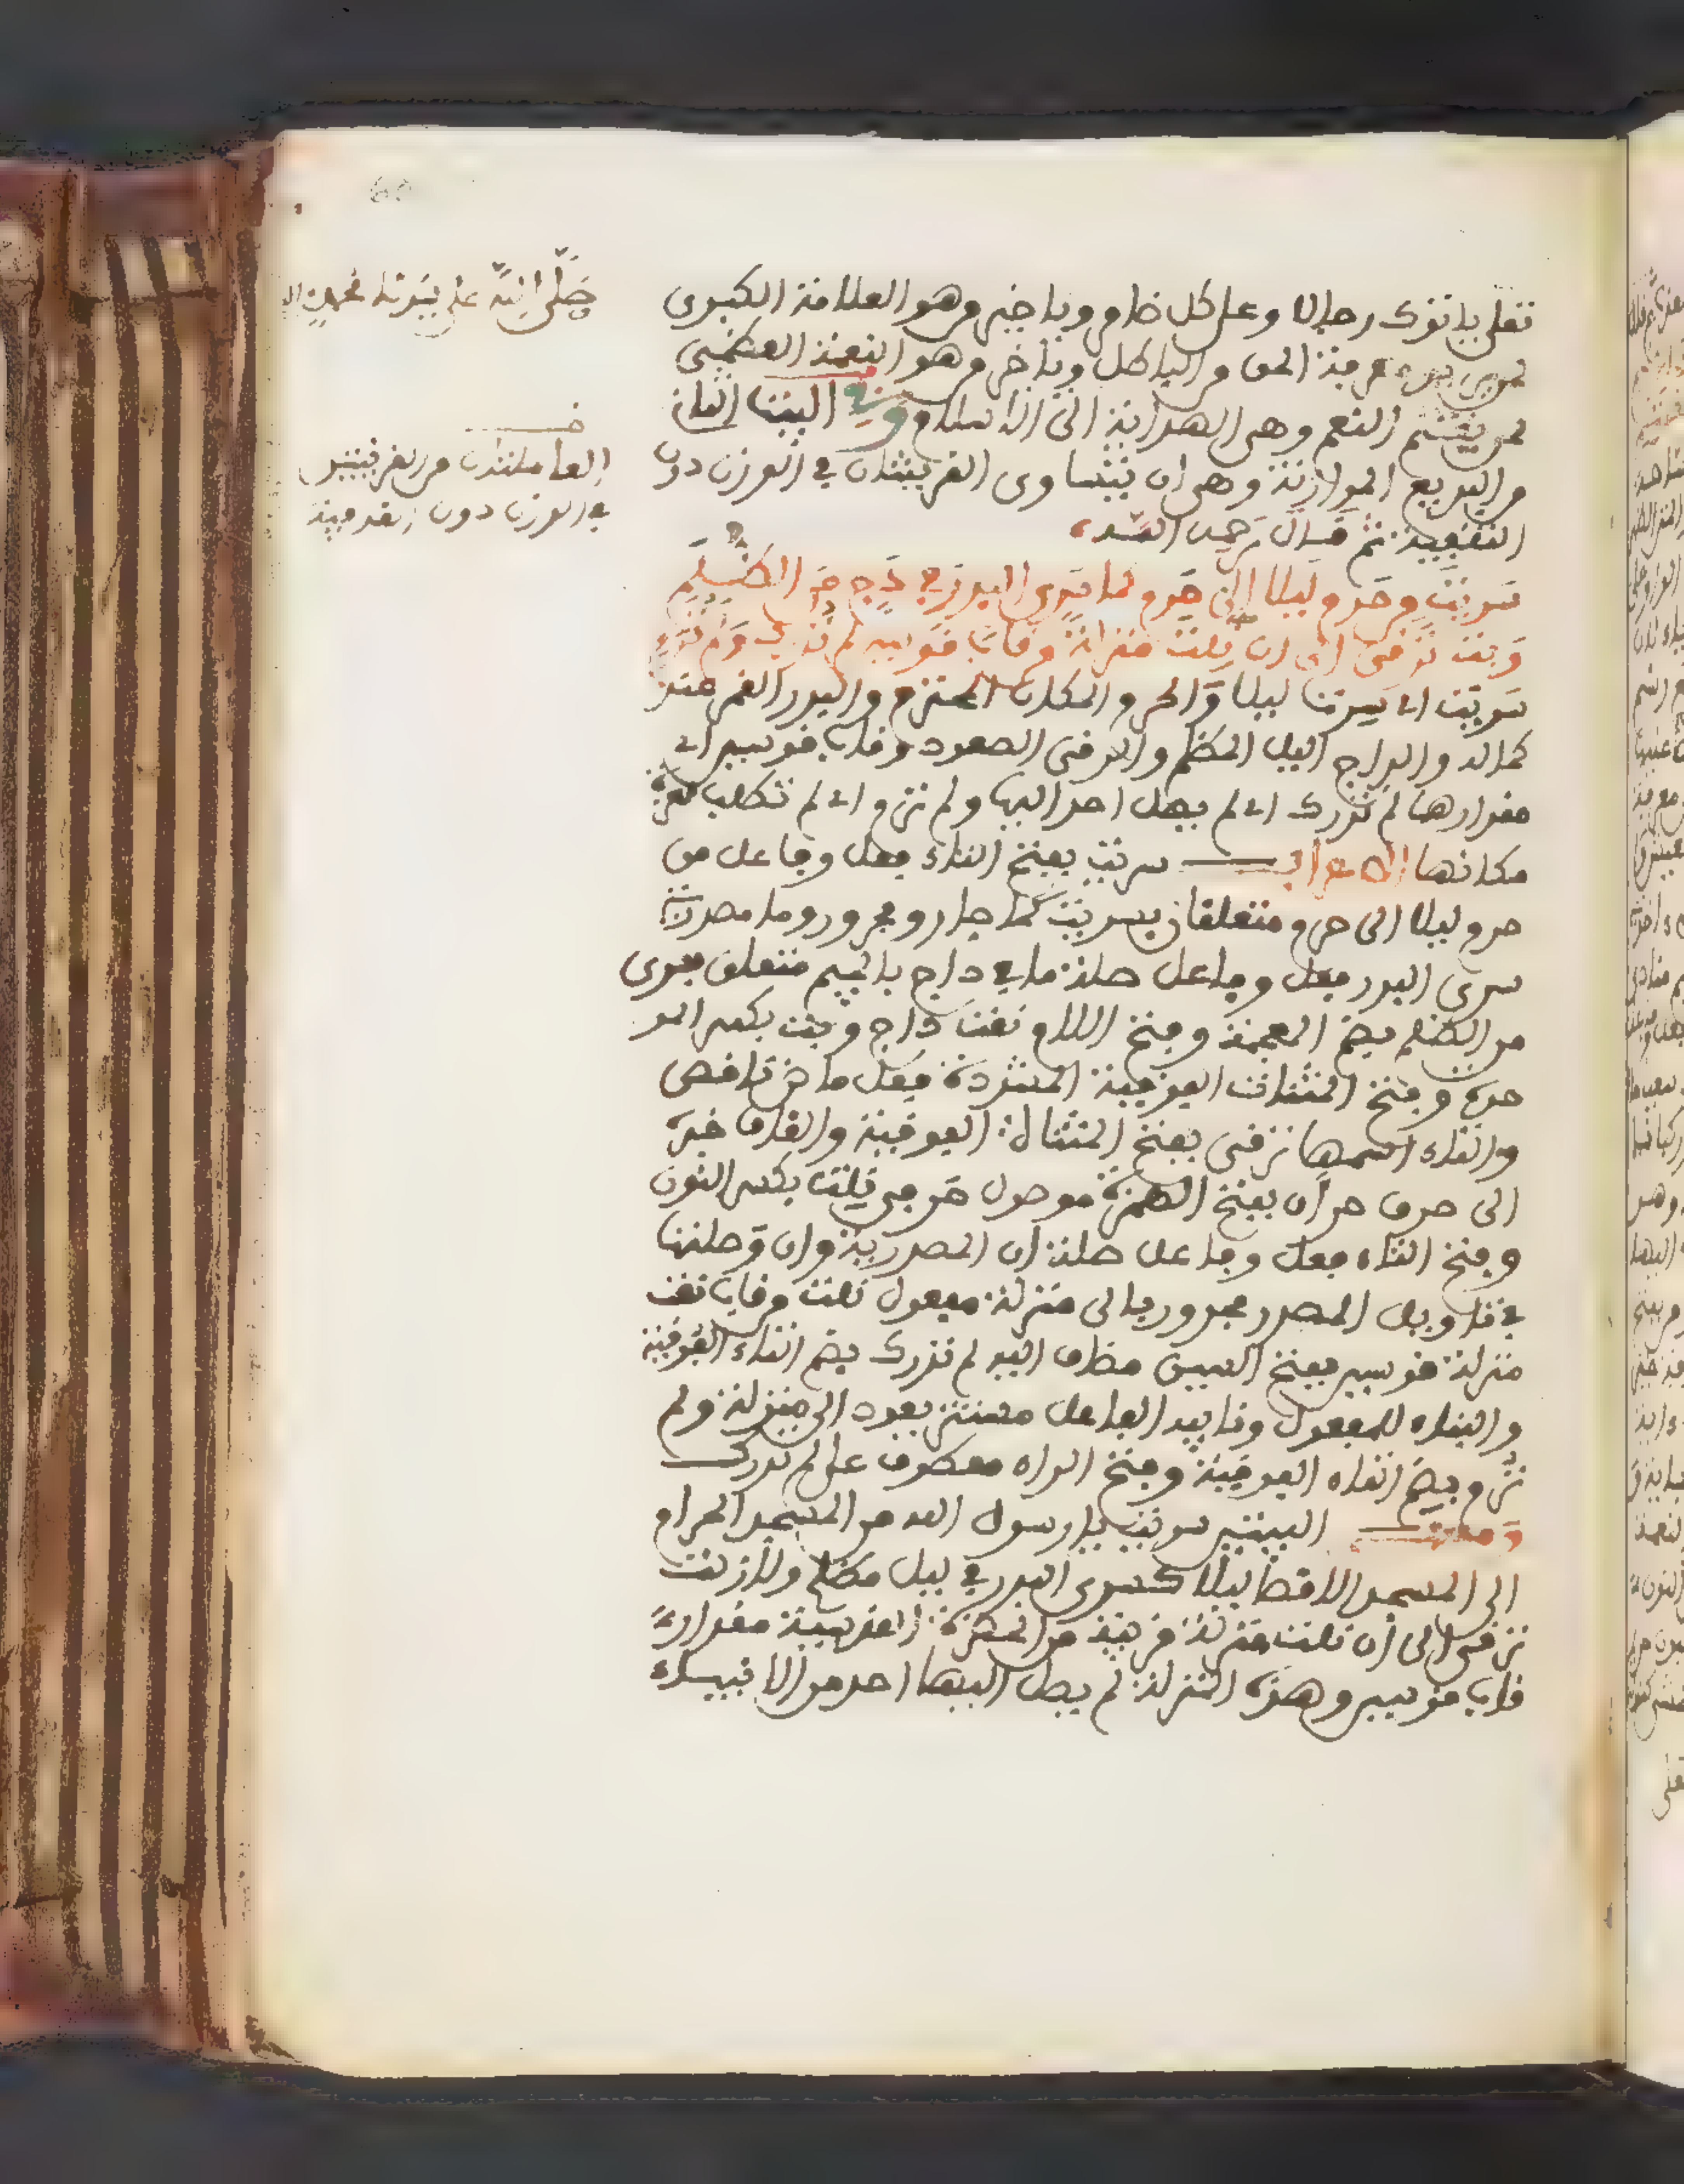 تعلى ياتوك رجالا وعلى كل ضامر وياخير من هو العلامة الكبرى
لمن يفرق بين الحق والباطل وياخير من هو النعمة العظمى
لمن يغتنم النعم وهي الهداية الى الاسلام وفي البيت الثاني
من البديع الموازنة وهي ان يتساوى القرينتان في الوزن دون
التقفية ثم قال رحمه الله
سريت من حرم ليلا الى حرم كما سرى البدر في داج من الظلم
وبت ترقى الى ان نلت منزلة من قاب قوسين لم تدرك ولم ترم
سريت اي سرت ليلا والحرم المكان المحترم والبدر القمر عند
كماله والداج اليل المظلم والرقي الصعود وقاب قوسين اي
مقدارهما لم تدرك اي لم يصل احد اليها ولم ترم اي لم تطلب لعزة
مكانها الاعراب سريت بفتح التاء فعل وفاعل من
حرم ليلا الى حرم متعلقان بسريت كما جار ومجرور وما مصدرية
سرى البدر فعل وفاعل صلة ما في داج بالجيم متعلق بسرى
من الظلم بضم المعجمة وفتح اللام نعت داج وبت بكسر المو
حدة وفتح المثنات الفوقية المشددة فعل ماض ناقص
والتاء اسمها ترقى بفتح المثناة الفوقية والقاف خبر
الى حرف جر ان بفتح الهمزة موصول حرفي نلت بكسر النون
وفتح التاء فعل وفاعل صلة ان المصدرية وان وصلتها
في تاويل المصدر مجرور بالى منزلة مفعول نلت من قاب نعت
منزلة قوسين بفتح السين مضاف اليه لم تدرك بضم التاء الفوقية
والبناء للمفعول ونايب الفاعل مستتر يعود الى منزلة ولم
ترم بضم التاء الفوقية وفتح الراء معطوف على لم تدرك
ومعنى البيتين سريت يا رسول الله من المسجد الحرام
الى المسجد الاقصا ليلا كسرى البدر في ليل مظلم ولازلت
ترقى الى ان نلت منزلة قريبة من الحضرة القدسية مقدار
قاب قوسين وهذه المنزلة لم يصل اليها احد من الانبياء
صلى الله على سيدنا محمد
العاملتان من القرينتين
في الوزن دون التقفية